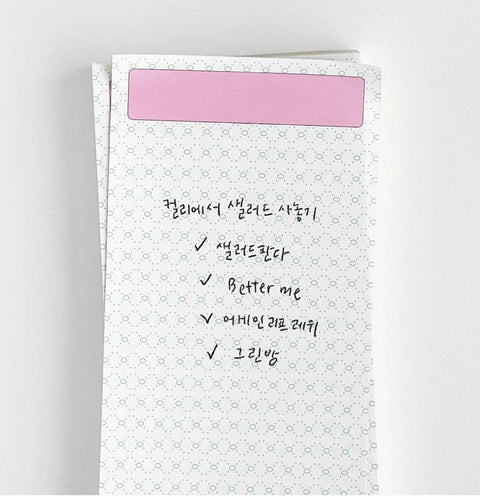 컬리에서 샐러드 사놓기
✓ 샐러드판다
✓ Better me
✓ 어게인리프레쉬
✓ 그린밤